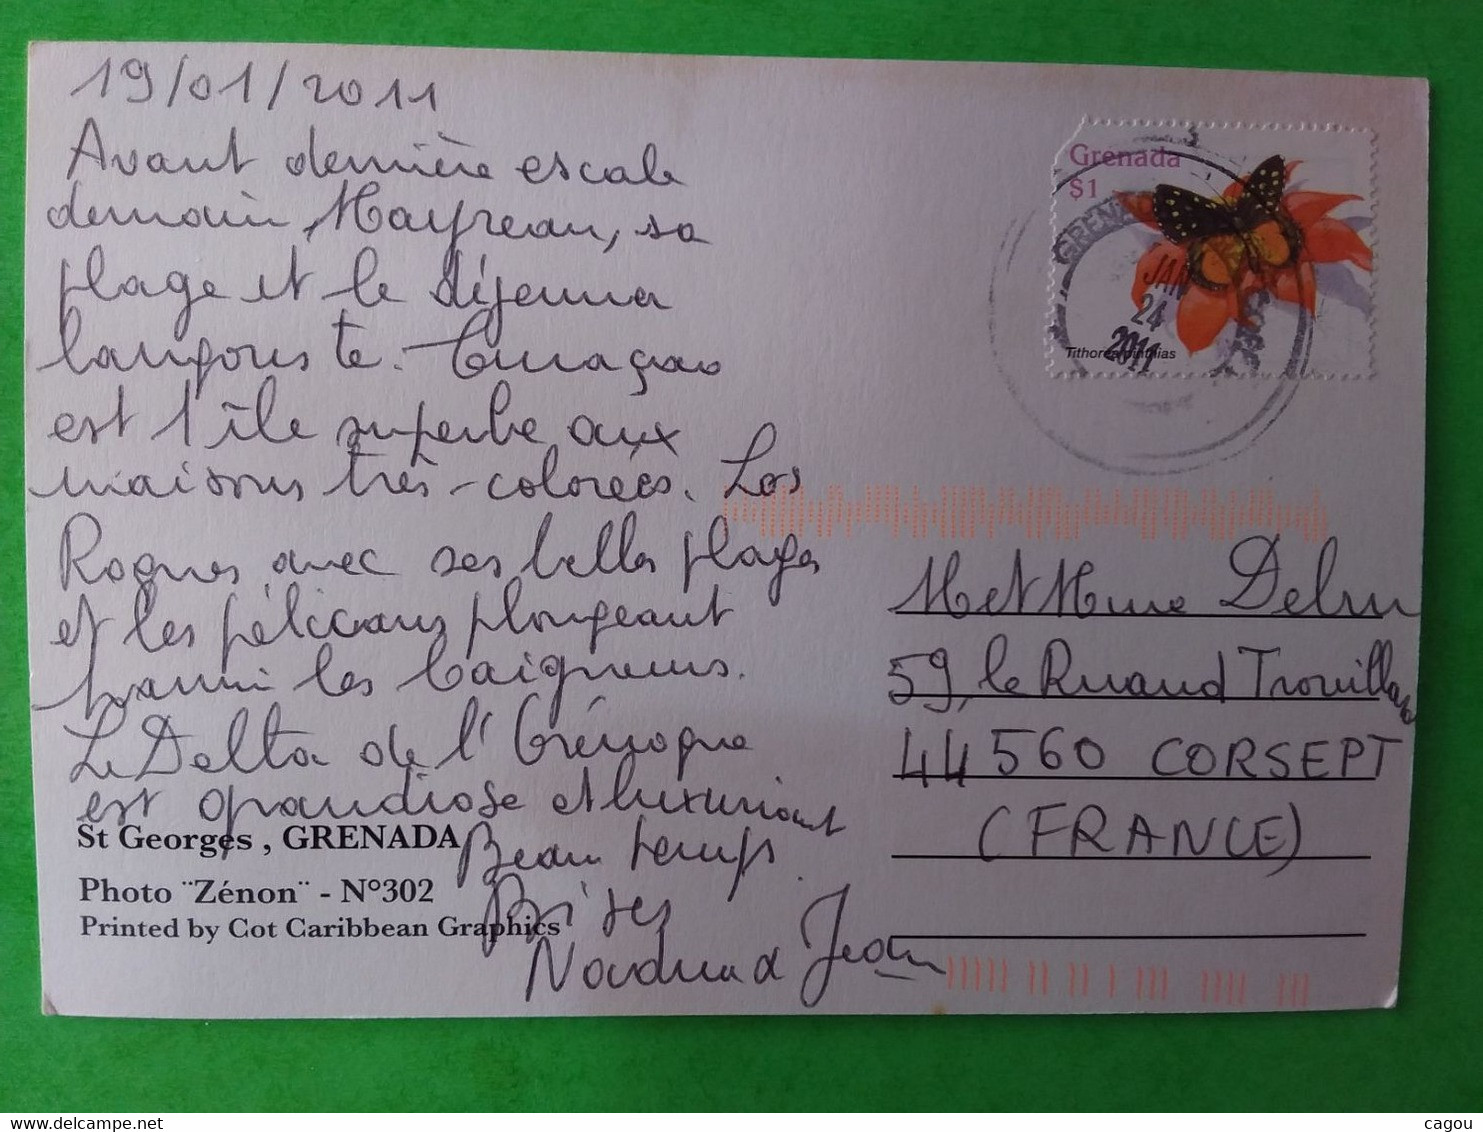 19/01/2011
Avant dernière escale
demain, Mayreau, sa
plage et le déjeuner
langouste. Curaçao
est l'île superbe aux
maisons très-colorées. Los
Roques avec ses belles plages
et les pélicans plongeant
parmi les baigneurs.
Le Delta de l'Orénoque
est grandiose et luxuriant
Beau temps.
Bises
Jean
St Georges , GRENADA
Photo ¨Zénon¨ - N°302
Printed by Cot Caribbean Graphics
Grenada
$1
GRENA
JAN
24
2011
M et Mme
59, le Ruaud Trouillard
44560 CORSEPT
(FRANCE)
cagou